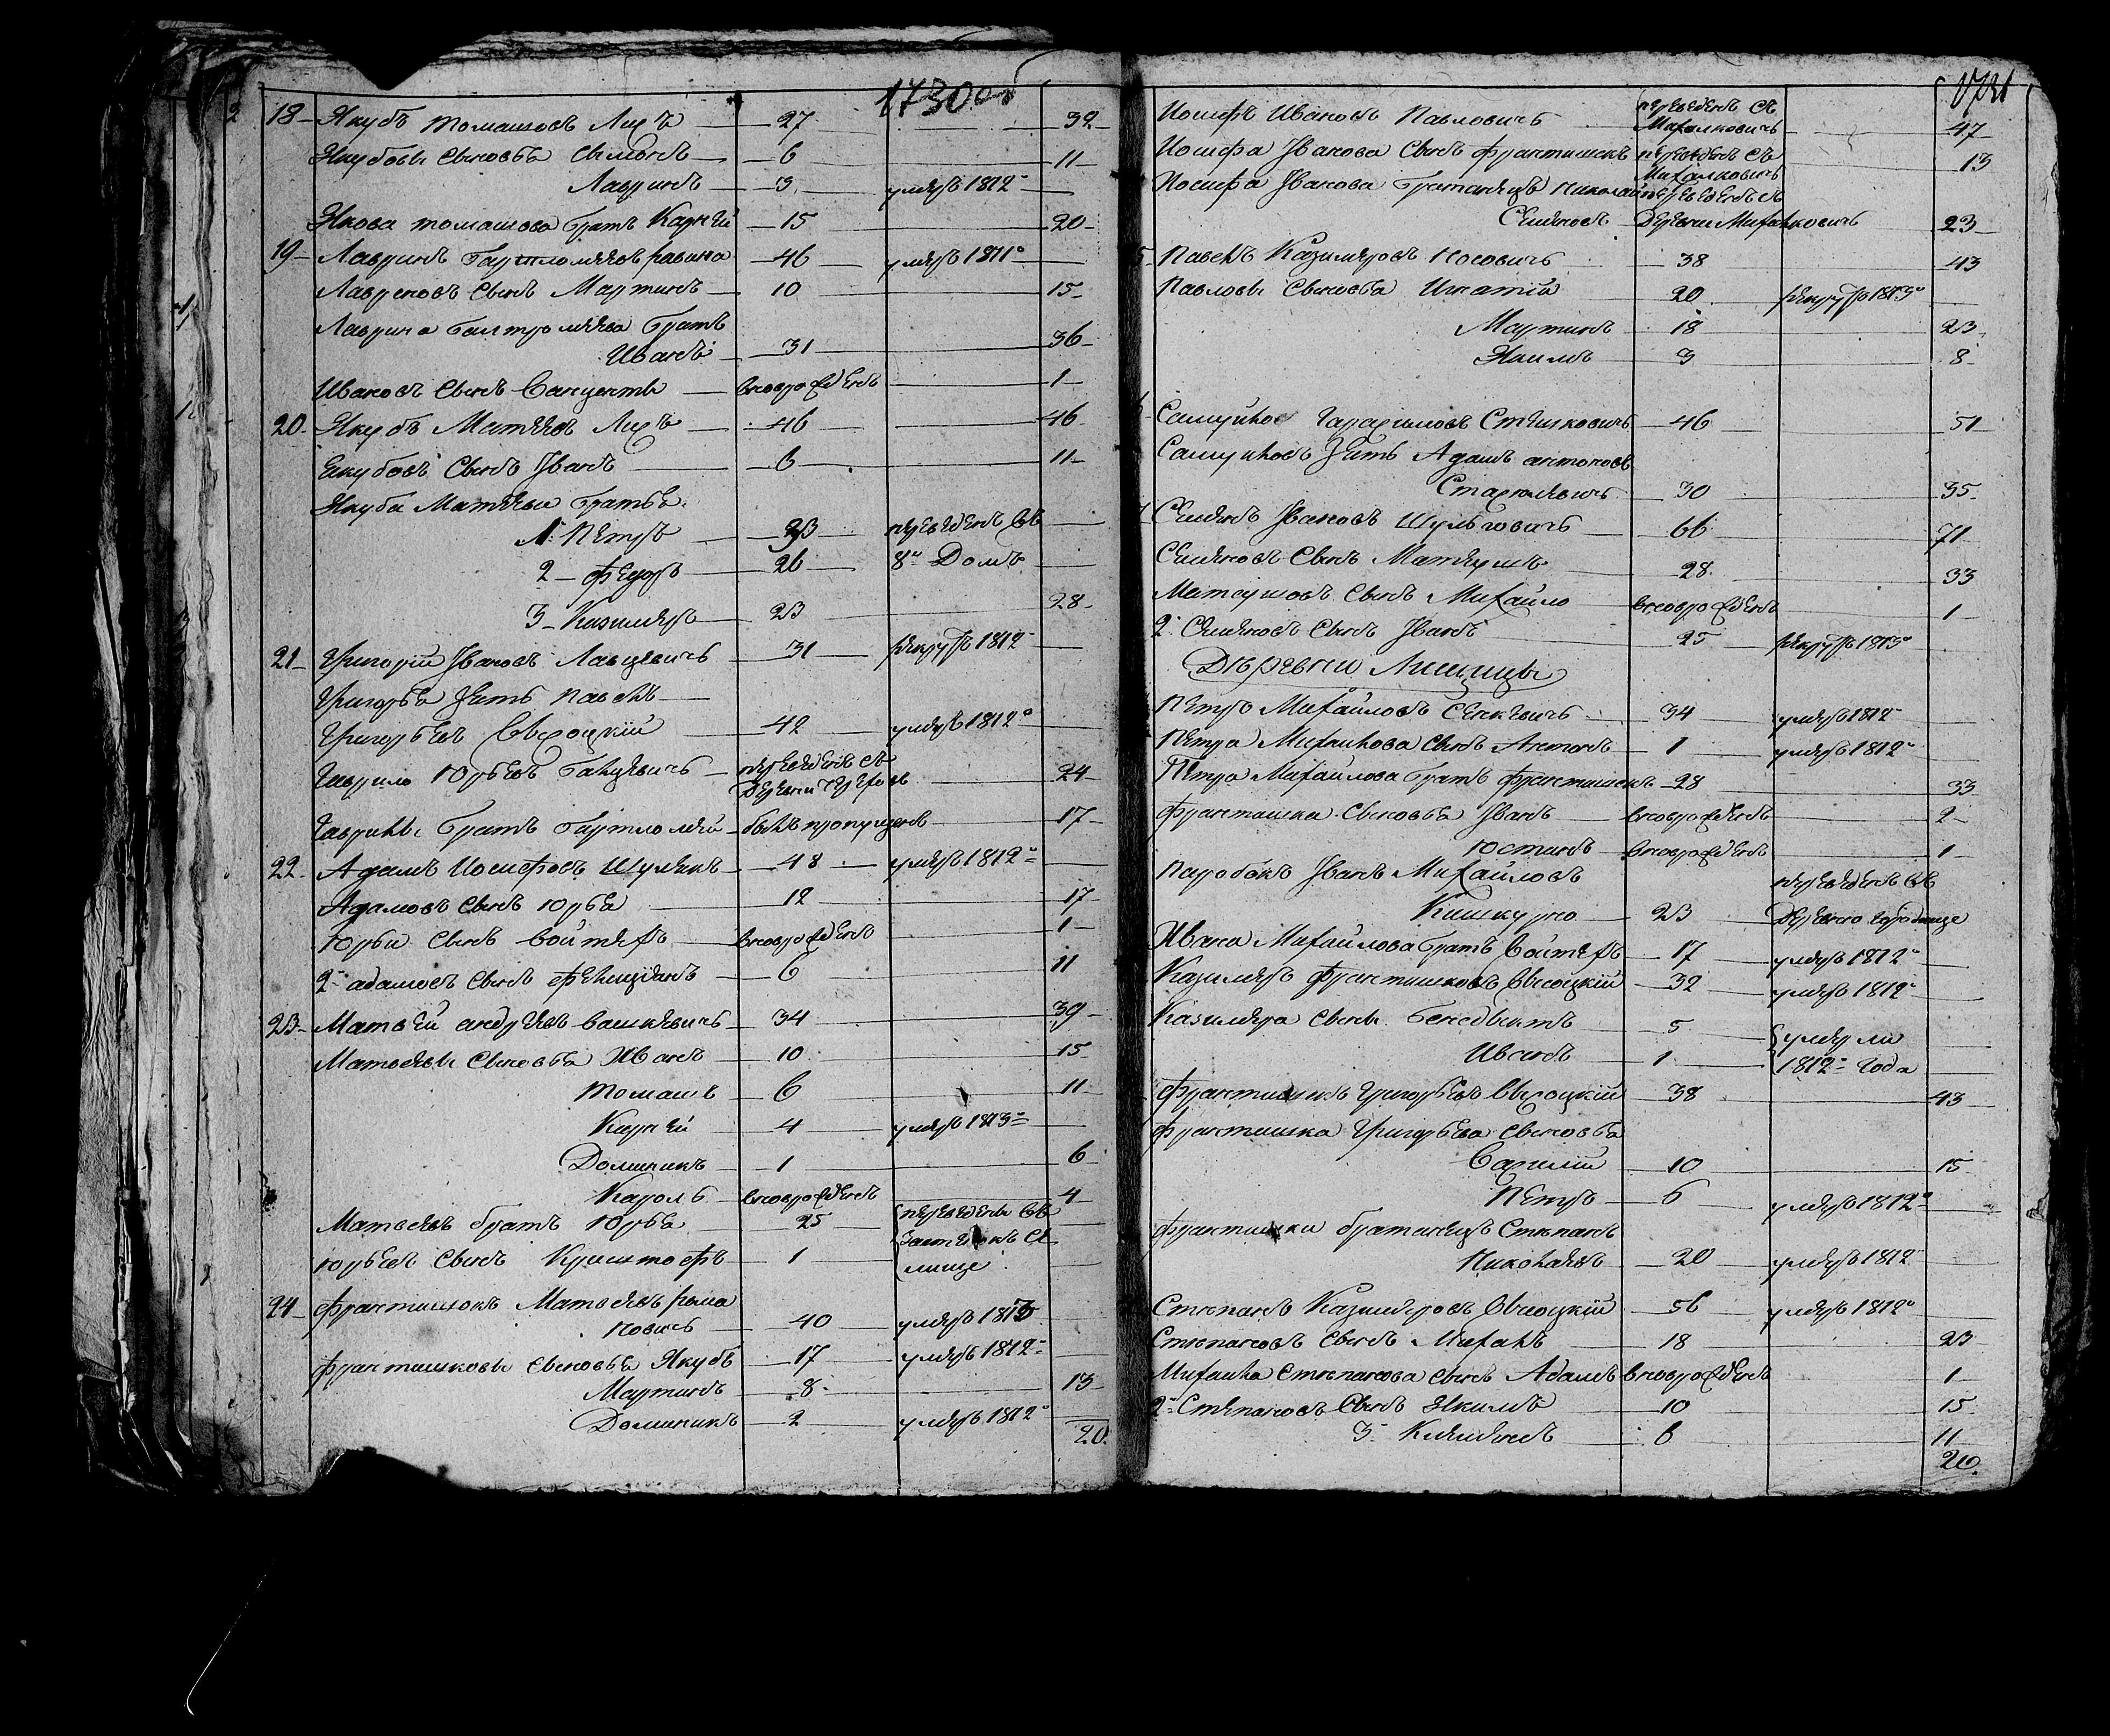 1730
2 18 Якубъ Томашовъ Лихъ 27 32
Якубовы сыновья Сымонъ 6 11
Лавринъ 3 умеръ 1812
Якова Томашова братъ Карней 15 20
19 Лавринъ Бартломеевъ 46 умеръ 1811
Лавреновъ сынъ Мартинъ 10 15
Лаврина Балтромеева братъ
Иванъ 31 36
Ивановъ сынъ Винценты вновророжденъ 1
20 Якубъ Матеевъ Лихъ 46 46
Екубовъ сынъ Иванъ 6 11
Якуба Матеева братья
1 Петръ переведенъ въ
2 Федоръ 26 8й домъ
3 Казимеръ 23 28
21 Григорій Ивановъ Лавцевичъ 31 рекрутъ 1812
Григорья зять Павелъ
Григорьевъ Высоцкій 42 умеръ 1812
Гаврило Юрьевъ переведенъ съ
деревни 24
Гаврилы братъ Бартломей былъ пропущенъ 17
22 Адамъ Іосифовъ 48 умеръ 1812
Адамовъ сынъ Юрья 12 17
Юрьи сынъ Войтехъ вноворожденъ 1
2 Адамовъ сынъ Фелиціанъ 6 11
23 Матвей Андреевъ Вашкевичъ 34 39
Матвеевы сыновья Иванъ 10 15
Томашъ 6 11
Карней 4 умеръ 1813
Доминикъ 1 6
Кароль вноворожденъ 4
Матвеевъ братъ Юрья 25 переведены въ
Юрьевъ сынъ Криштофъ 1 застенокъ Се
лище
24 Франтишокъ Матвеевъ Рома
новичъ 40 умеръ 1813
Франтишковы сыновья Якубъ 17 умеръ 1812
Мартинъ 8 13
Доминикъ 2 умеръ 1812
20
1731
Иосифъ Ивановъ Павловичъ переведенъ съ
Михалковичъ 47
Иосифа Иванова сынъ Франтишекъ переведенъ съ 13
Михалковичъ
Иосифа Иванова братанецъ Николай переведенъ съ
Семеновъ деревни Михалковичъ 23
5 Павелъ Казимеровъ Носовичъ 38 43
Павловы сыновья Игнатій 20 рекрутъ 1813
Мартинъ 18 23
Якимъ 3 8
Самуйло Стешковичъ 46 51
Самуиловъ зять Адамъ Антоновъ
30 35
Семенъ Ивановъ Шульговичъ 66 71
Семеновъ сынъ Матеушъ 28 33
Матеушовъ сынъ Михайло вноворожденъ 1
2 Семеновъ сынъ Иванъ 25 рекрутъ 1813
Деревни Лисицы
Петръ Михайловъ Сенкевичъ 34 умеръ 1812
Петра Михайлова сынъ Антонъ 1 умеръ 1812
Петра Михайлова братъ Франтишекъ 28 33
Франтишка сыновья Иванъ вноворожденъ 2
Юстинъ вноворожденъ 1
Паробокъ Иванъ Михайловъ переведенъ въ
Кишкурно 23 деревню Городище
Ивана Михайлова братъ Войтехъ 17 умеръ 1812
Казимеръ Франтишковъ Высоцкій 32 умеръ 1812
Казимера сыны Бенедыктъ 5 умерли
Иванъ 1 1812 года
Франтишекъ Григорьевъ Высоцкій 38 43
Франтишка Григорьева сыновья
Василій 10 15
Петръ 6 умеръ 1812
Франтишка братанецъ Степанъ
Николаевъ 20 умеръ 1812
Степанъ Казимеровъ Высоцкій 56 умеръ 1812
Степановъ сынъ Михалъ 18 23
Михаила Степанова сынъ Адамъ вноворожденъ 1
2 Степановъ сынъ Якимъ 10 15
3 6 11
20